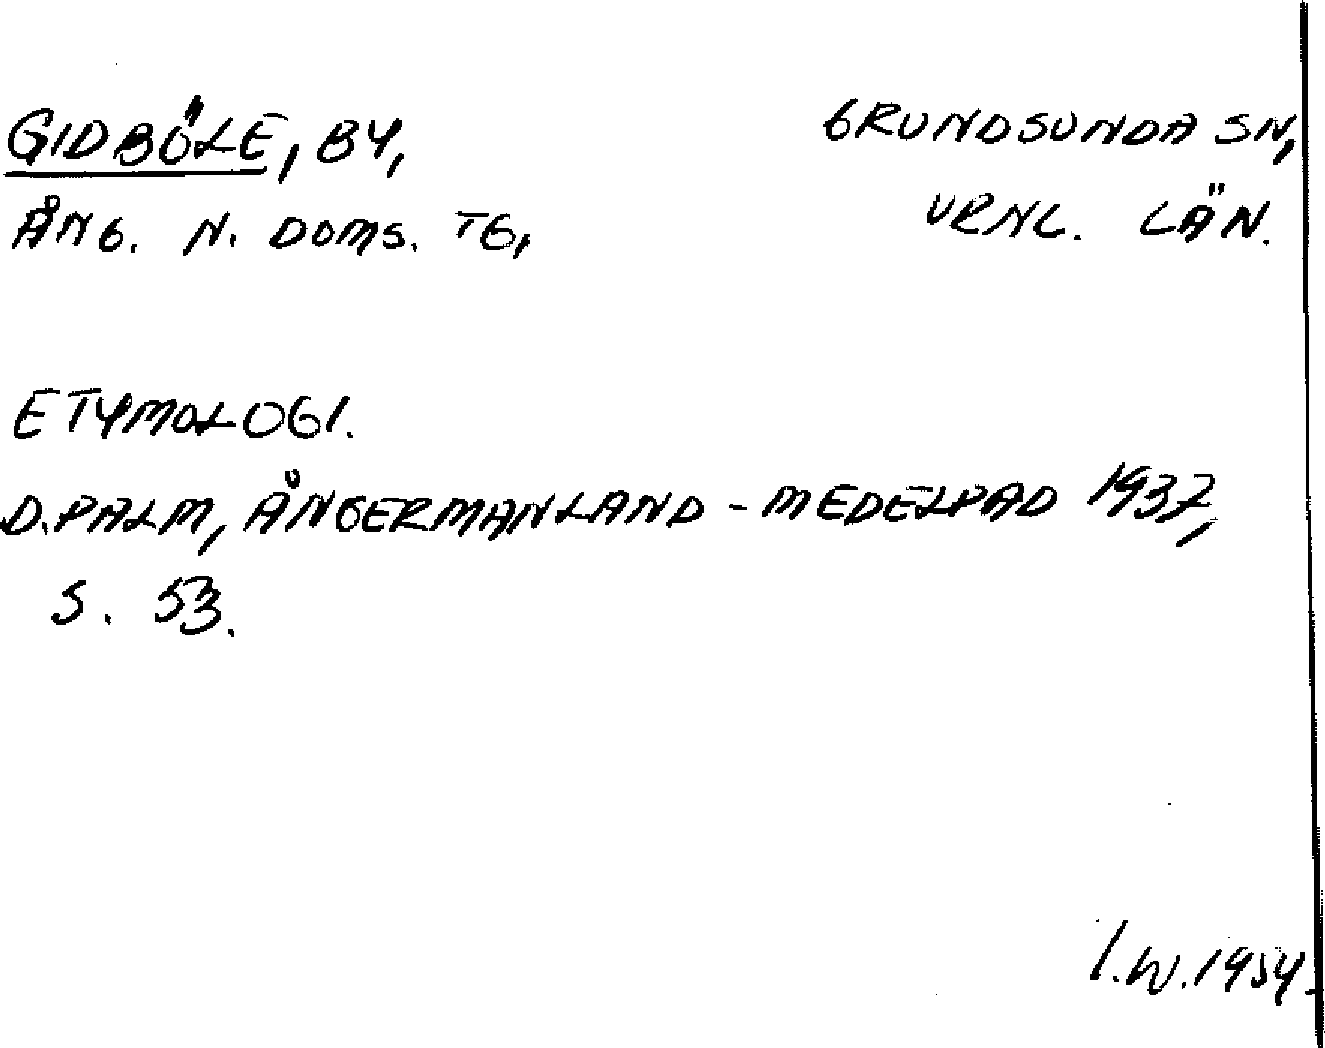 GIDBÖLE, BY,
GRUNDSUNDA SN,
ÅNG. N. DOMS. TG,
VRNL. LÄN.
ETYMOLOGI.
D. PALM, ÅNGERMANLAND - MEDELPAD 1937,
S. 53.
I.W. 1954.